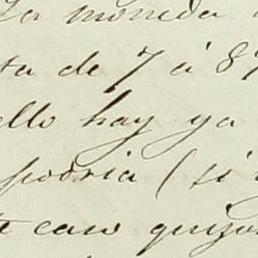 La moneda
ta de 7 á 8
ello hay ya
podria (si
caso quizá